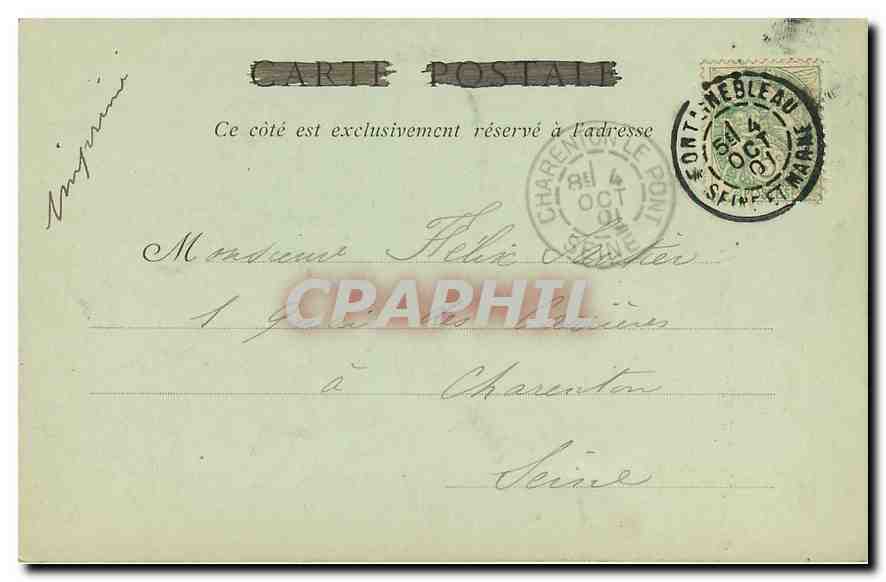 CARTE POSTALE
Ce côté est exclusivement réservé à l'adresse
Imprimé
FONTAINEBLEAU
4
OCT
01
SEINE ET MARNE
CHARENTON LE PONT
8E 4
OCT
01
SEINE
Monsieur Félix
CPAPHIL
1 Quai des Carrières
à Charenton
Seine